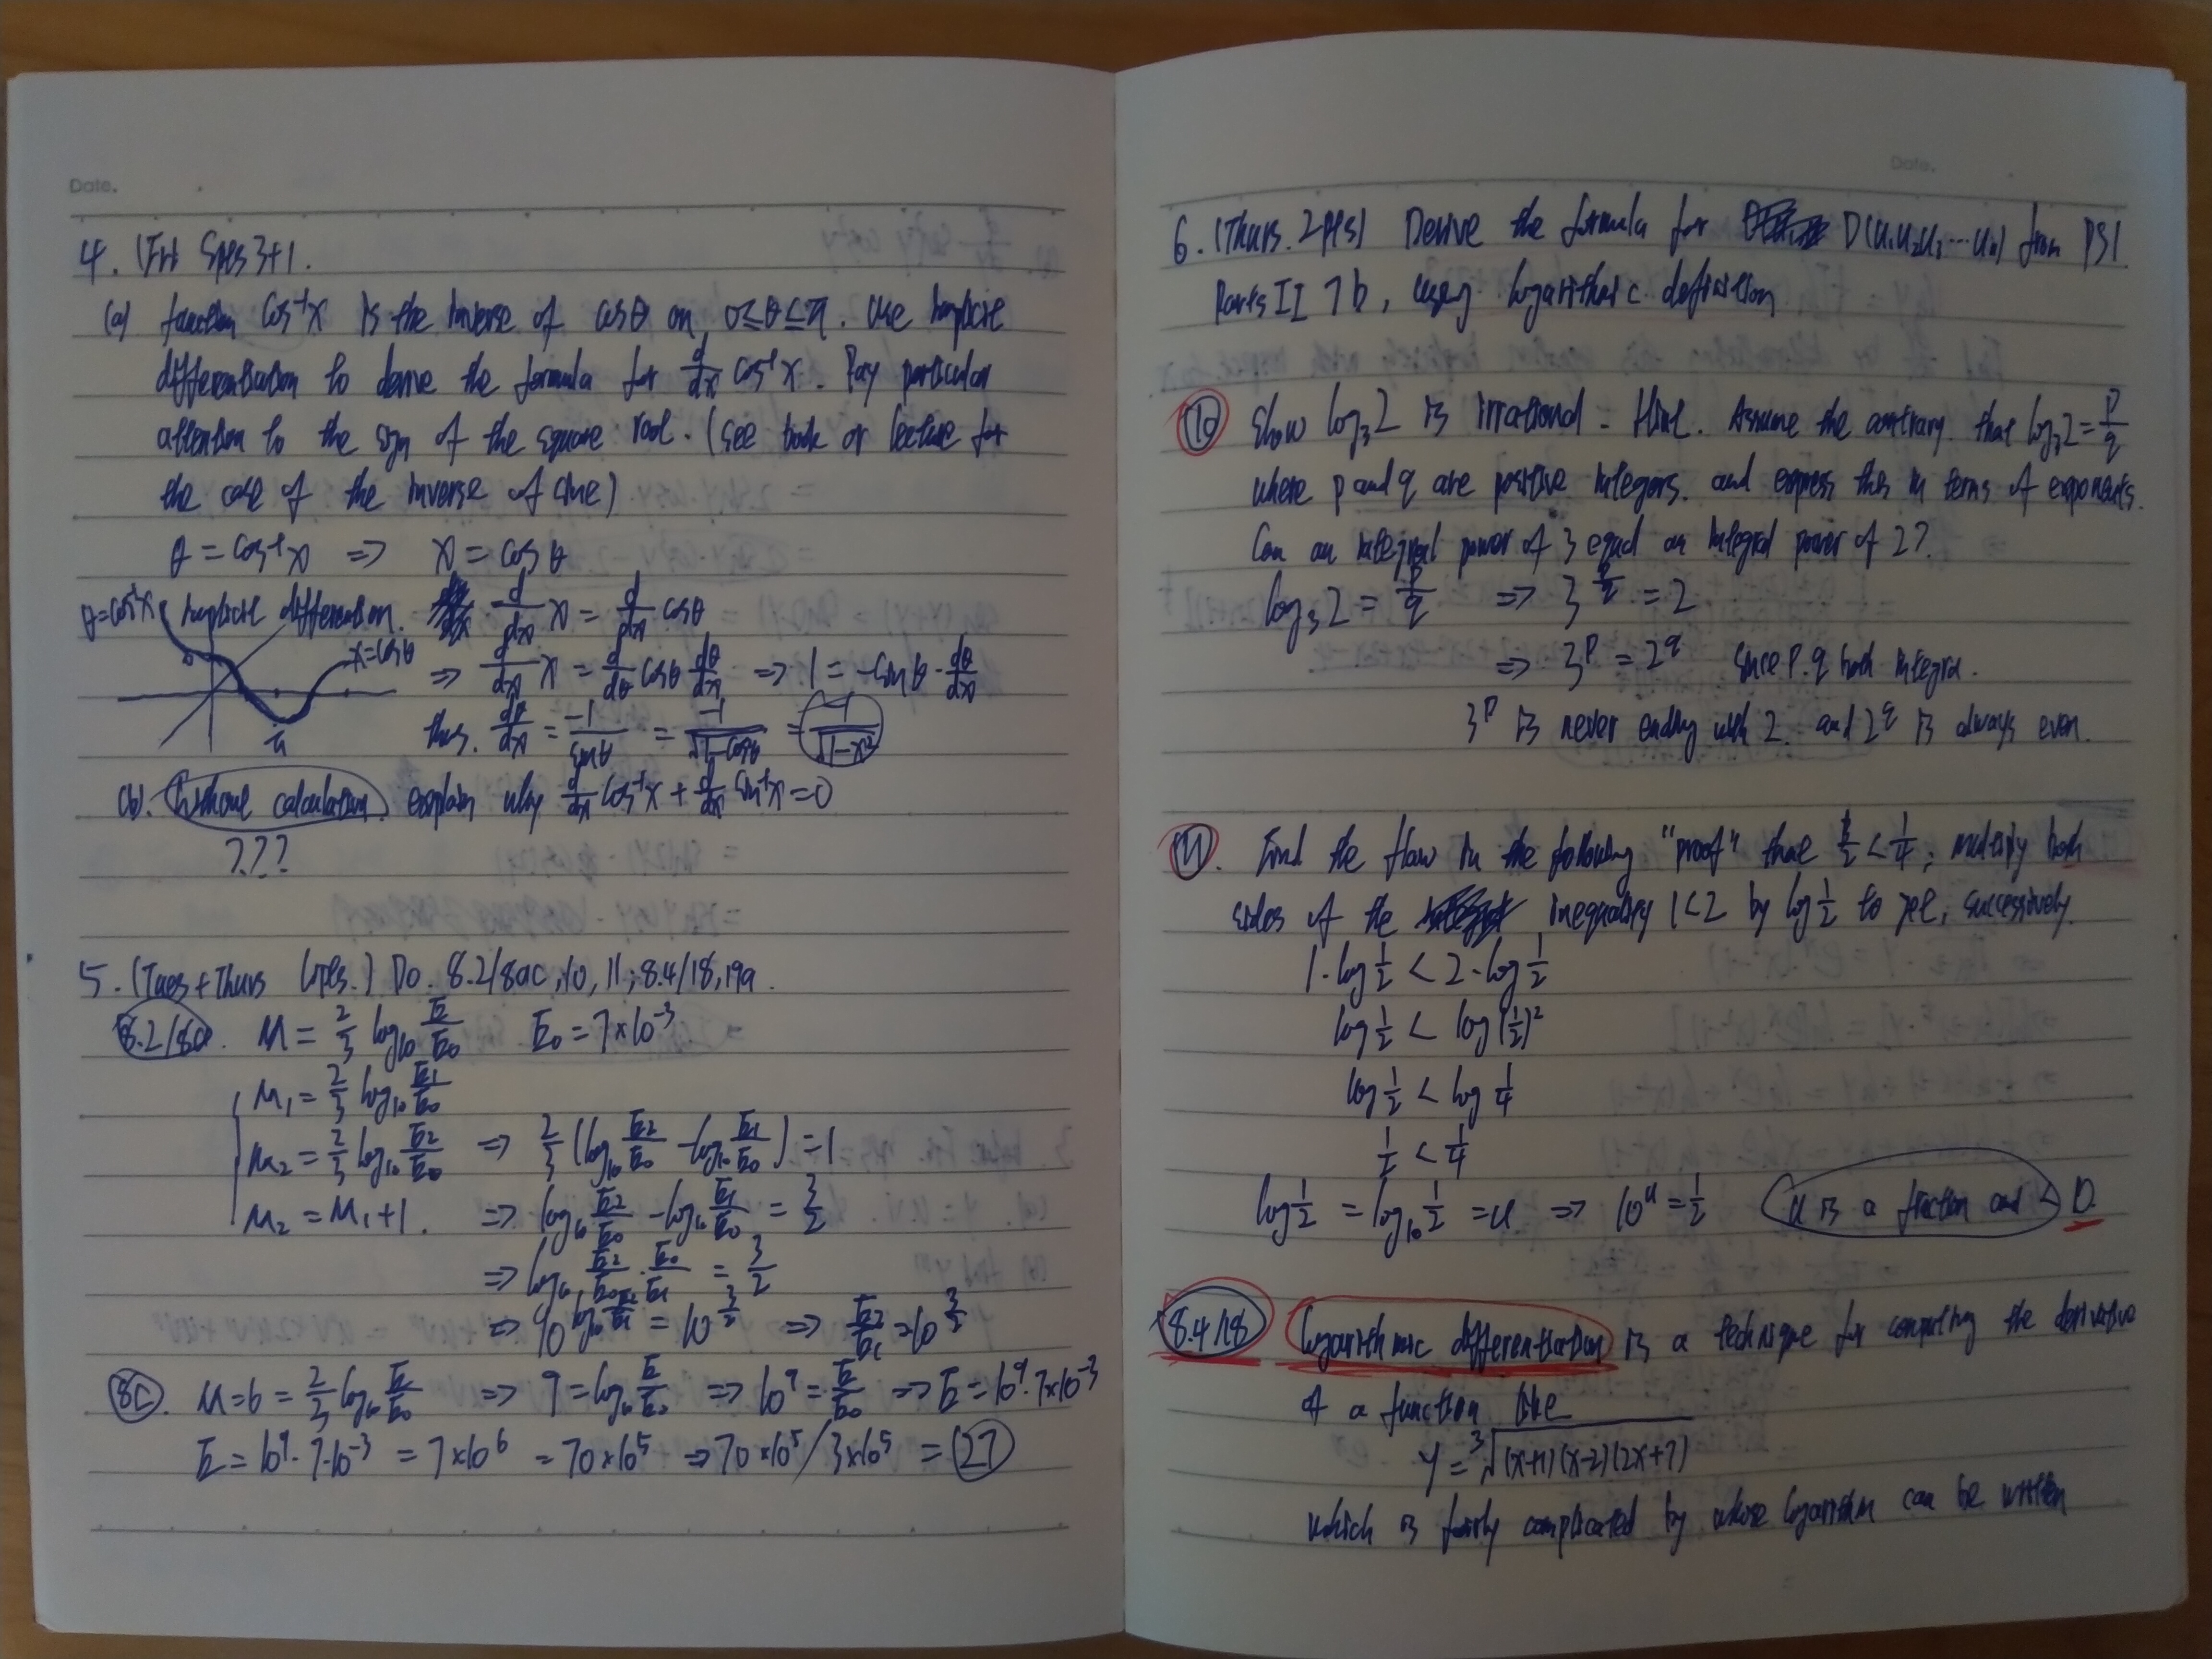 Date.
4. (Fri 8pts 3+1.
(a) function cos⁻¹x is the inverse of cosθ on 0≤θ≤π. Use implicit
differentiation to derive the formula for d/dx cos⁻¹x. Pay particular
attention to the sign of the square root. (see book or lecture for
the case of the inverse of sine)
θ = cos⁻¹x ⇒ x = cosθ
θ=cos⁻¹x implicit differentiation. d/dx x = d/dx cosθ
x=cosθ ⇒ d/dx x = d/dθ cosθ dθ/dx ⇒ 1 = -sinθ · dθ/dx
π thus. dθ/dx = -1/sinθ = -1/√1-cosθ = -1/√1-x²
(b). Without calculation, explain why d/dx cos⁻¹x + d/dx sin⁻¹x = 0
???
5. (Tues + Thurs 6pts.) Do 8.2/8ac, 10, 11; 8.4/18, 19a.
8.2/8a. M = 2/3 log₁₀ E/E₀ E₀ = 7×10⁻³
M₁ = 2/3 log₁₀ E₁/E₀
M₂ = 2/3 log₁₀ E₂/E₀ ⇒ 2/3 (log₁₀ E₂/E₀ - log₁₀ E₁/E₀) = 1
M₂ = M₁+1. ⇒ log₁₀ E₂/E₀ - log₁₀ E₁/E₀ = 3/2
⇒ log₁₀ E₂/E₀ · E₀/E₁ = 3/2
⇒ 10^(log₁₀ E₂/E₁) = 10^(3/2) ⇒ E₂/E₁ = 10^(3/2)
8c. M=6 = 2/3 log₁₀ E/E₀ ⇒ 9 = log₁₀ E/E₀ ⇒ 10⁹ = E/E₀ ⇒ E = 10⁹·7×10⁻³
E = 10⁹·7·10⁻³ = 7×10⁶ = 70×10⁵ ⇒ 70×10⁵/3×10⁵ = 27
Date.
6. (Thurs. 2pts) Derive the formula for D(u₁u₂u₃···uₙ) from PS1
Parts II 7b, using logarithmic
10 Show log₃2 is irrational. Hint. Assume the contrary that log₃2 = p/q
where p and q are positive integers. and express this in terms of exponents.
Can an integral power of 3 equal an integral power of 2?
log₃2 = p/q ⇒ 3^(p/q) = 2
⇒ 3^p = 2^q since p. q both
3^p is never ending with 2. and 2^q is always even.
11. Find the flaw in the following "proof" that 1/2 < 1/4; multiply both
sides of the inequality 1<2 by log 1/2 to get, successively.
1·log 1/2 < 2·log 1/2
log 1/2 < log(1/2)²
log 1/2 < log 1/4
1/2 < 1/4
log 1/2 = log₁₀ 1/2 = u ⇒ 10^u = 1/2 u is a fraction and < 0.
8.4/18 logarithmic differentiation is a technique for computing the derivative
of a function like
y = ³√(x+1)(x-2)(2x+7)
which is fairly complicated by whose logarithm can be written